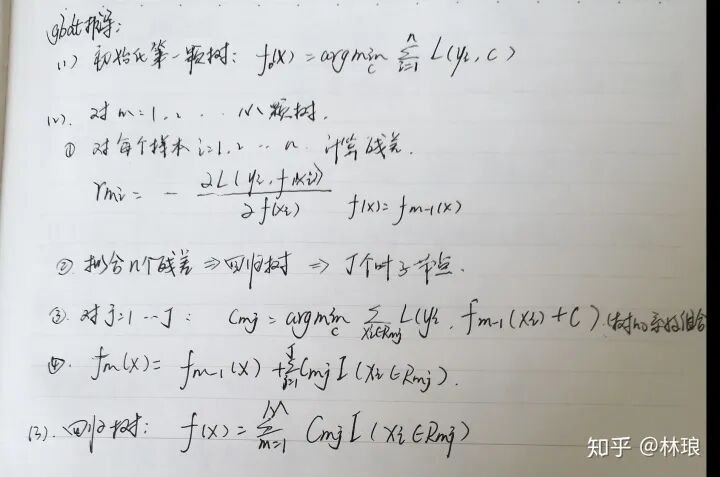 gbdt推导:
(1) 初始化第一颗树: f₀(x) = argmin_c Σ_{i=1}^{n} L(yi, c)
(2). 对m=1, 2, ... M 颗树.
① 对每个样本 i=1, 2, ... n. 计算残差.
rmi = - ∂L(yi, f(xi)) / ∂f(xi) f(x) = fm-1(x)
② 拟合n个残差 ⇒ 回归树 ⇒ J个叶子节点.
③. 对于j=1...J: Cmj = argmin_c Σ_{xi∈Rmj} L(yi, fm-1(xi)+c).
④. fm(x) = fm-1(x) + Σ_{j=1}^{J} Cmj I(xi∈Rmj).
(3). 回归树: f(x) = Σ_{m=1}^{M} Cmj I(xi∈Rmj)
知乎 @林琅